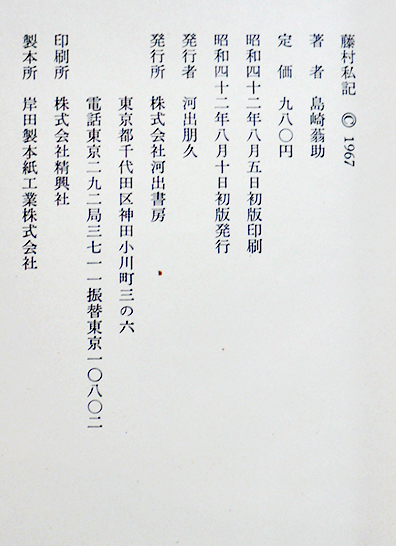 藤村私記 © 1967
著者 島崎蓊助
定価 九八〇円
昭和四十二年八月五日初版印刷
昭和四十二年八月十日初版発行
発行者 河出朋久
発行所 株式会社河出書房
東京都千代田区神田小川町三の六
電話東京二九二局三七一一振替東京一〇八〇二
印刷所 株式会社精興社
製本所 岸田製本紙工業株式会社